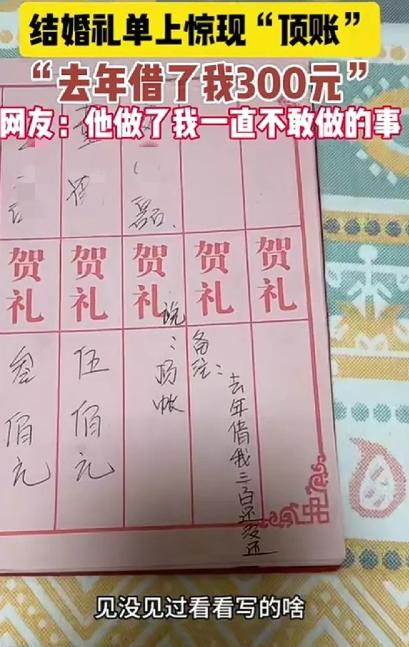 结婚礼单上惊现“顶账”
“去年借了我300元”
网友：他做了我一直不敢做的事
贺礼 贺礼 贺礼 贺礼 贺礼
叁佰元
伍佰元
说：顶帐
备注：去年借我三百还没还
见没见过看看写的啥